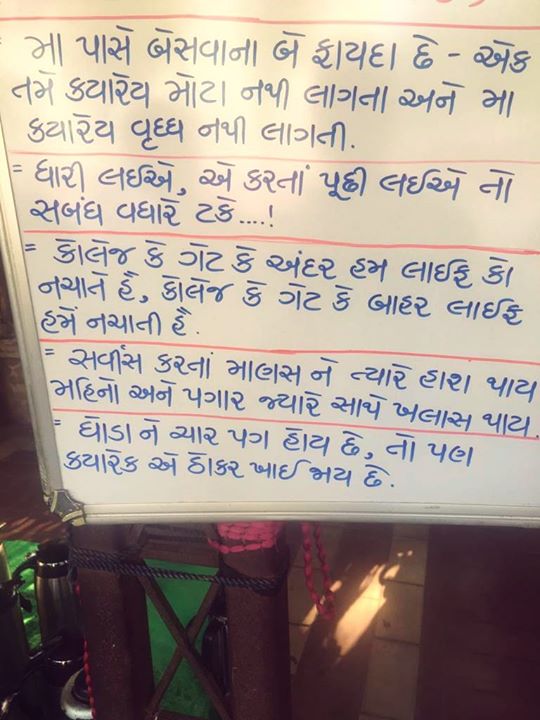 = મા પાસે બેસવાના બે ફાયદા છે - એક
તમે કયારેય મોટા નથી લાગતા અને મા
કયારેય વૃધ્ધ નથી લાગતી.
= ધારી લઈએ, એ કરતાં પૂછી લઈએ તો
સબંધ વધારે ટકે....!
= કોલેજ કે ગેટ કે અંદર હમ લાઈફ કો
નચાતે હૈં, કોલેજ કે ગેટ કે બાહર લાઈફ
હમેં નચાતી હૈં.
= સર્વીસ કરતાં માણસ ને ત્યારે હાશ થાય
મહિનો અને પગાર જ્યારે સાથે ખલાસ થાય.
= ઘોડા ને ચાર પગ હોય છે, તો પણ
કયારેક એ ઠોકર ખાઈ જાય છે.